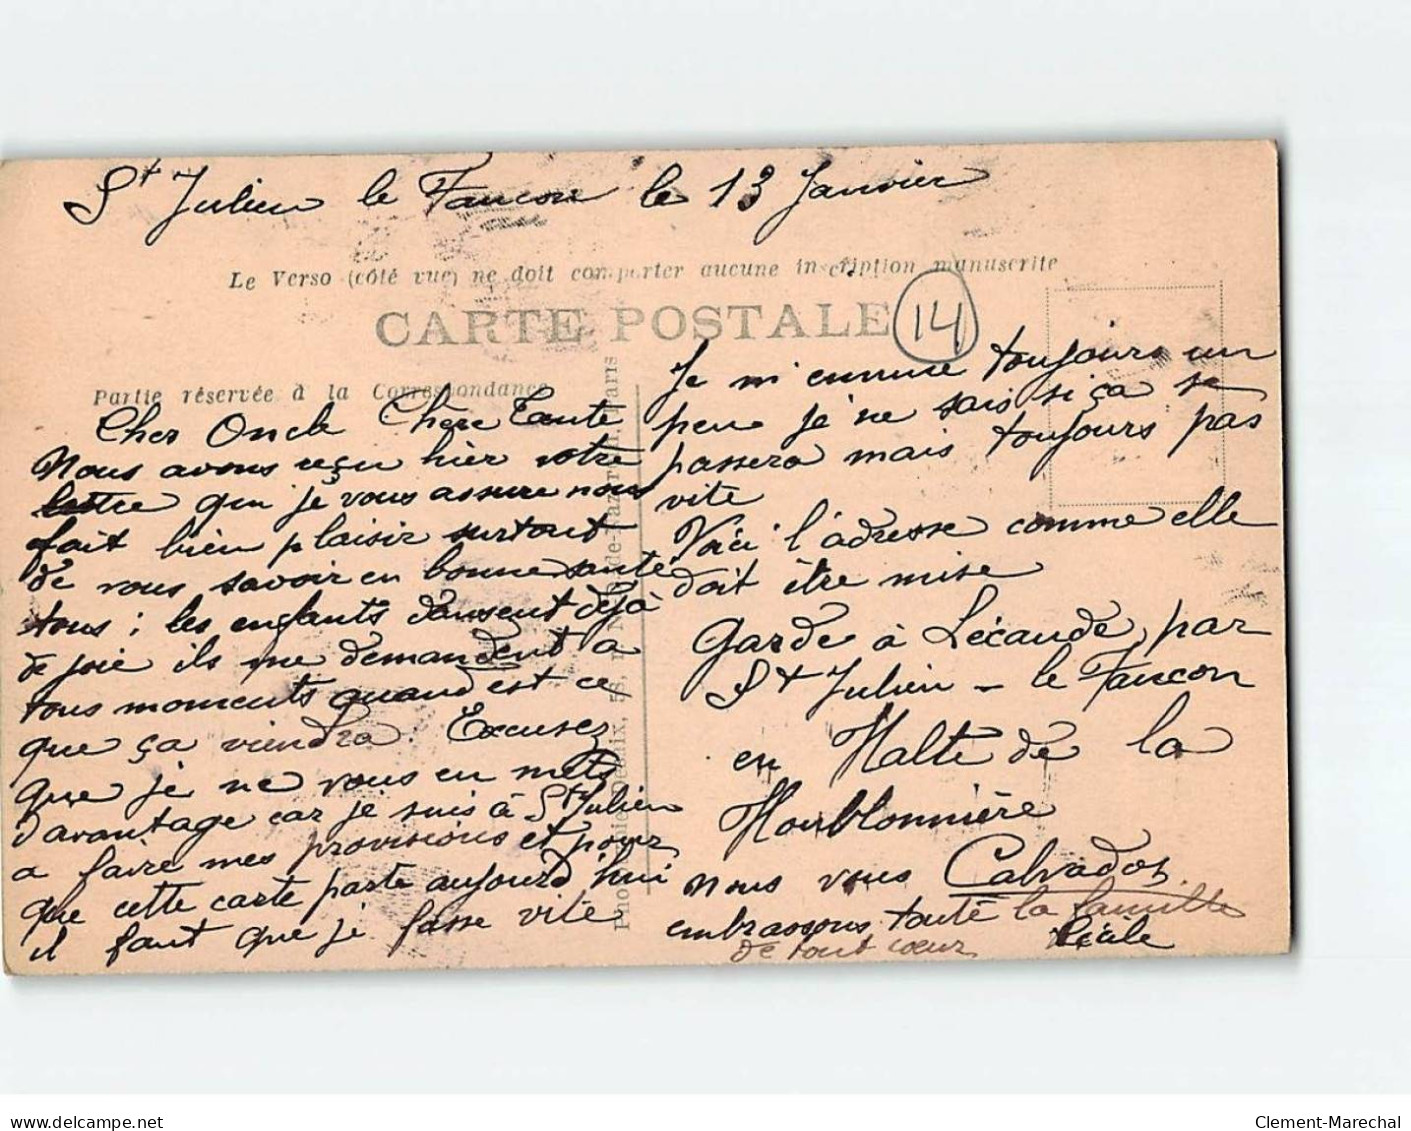 St Julien le Faucon le 13 Janvier
Le Verso (côté vue) ne doit comporter aucune inscription manuscrite
CARTE POSTALE
14
Partie réservée à la Correspondance
Cher Oncle Chère Tante
Nous avons reçu hier votre
lettre qui je vous assure nous
fait bien plaisir surtout
de vous savoir en bonne santé
tous ; les enfants dansent déjà
de joie ils me demandent a
tous moments quand est ce
que ça viendra. Excusez
que je ne vous en mets
davantage car je suis à St Julien
a faire mes provisions et pour
que cette carte parte aujourd'hui
il faut que je fasse vite
Je m'ennuie toujours un
peu je ne sais si ça se
passera mais toujours pas
vite
Voici l'adresse comme elle
doit être mise
Garde à Lécaude, par
St Julien - le Faucon
en Halte de la
Houblonnière
Calvados
Nous vous
embrassons toute la famille
de tout cœur
Phototypie Desaix, 58, r. N.-D.-de-Nazareth, Paris
Clement-Marechal
www.delcampe.net